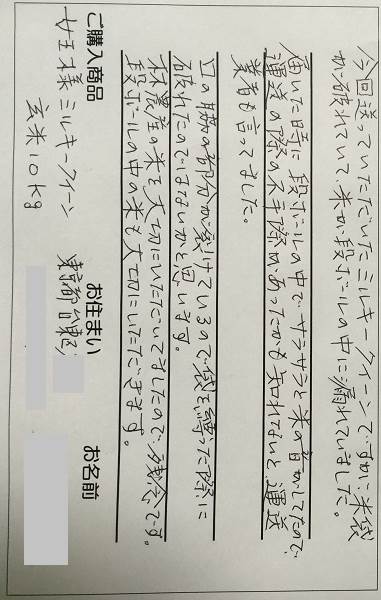 今回送っていただいたミルキークイーンですが米袋
が破れていて米が段ボールの中に漏れていました。
届いた時に段ボールの中でサラサラと米の音がしてたので、
運送の際の不手際があったかも知れないと運送
業者も言ってました。
口の脇の部分が裂けているので袋を縛った際に
破れたのではないかと思います。
林農産の米も大切にいただいてましたので残念です。
段ボールの中の米も大切にいただきます。
ご購入商品 お住まい お名前
女王様ミルキークイーン 東京都台東区
玄米10kg